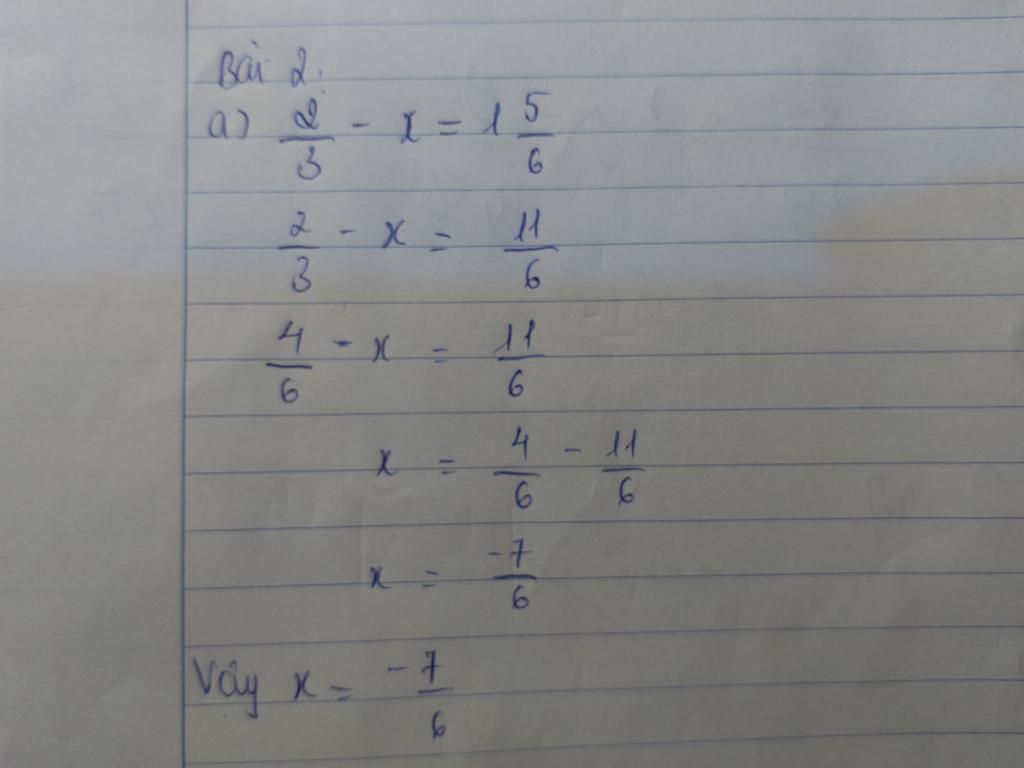 Bài 2.
a) 2/3 - x = 1 5/6
2/3 - x = 11/6
4/6 - x = 11/6
x = 4/6 - 11/6
x = -7/6
Vậy x = -7/6